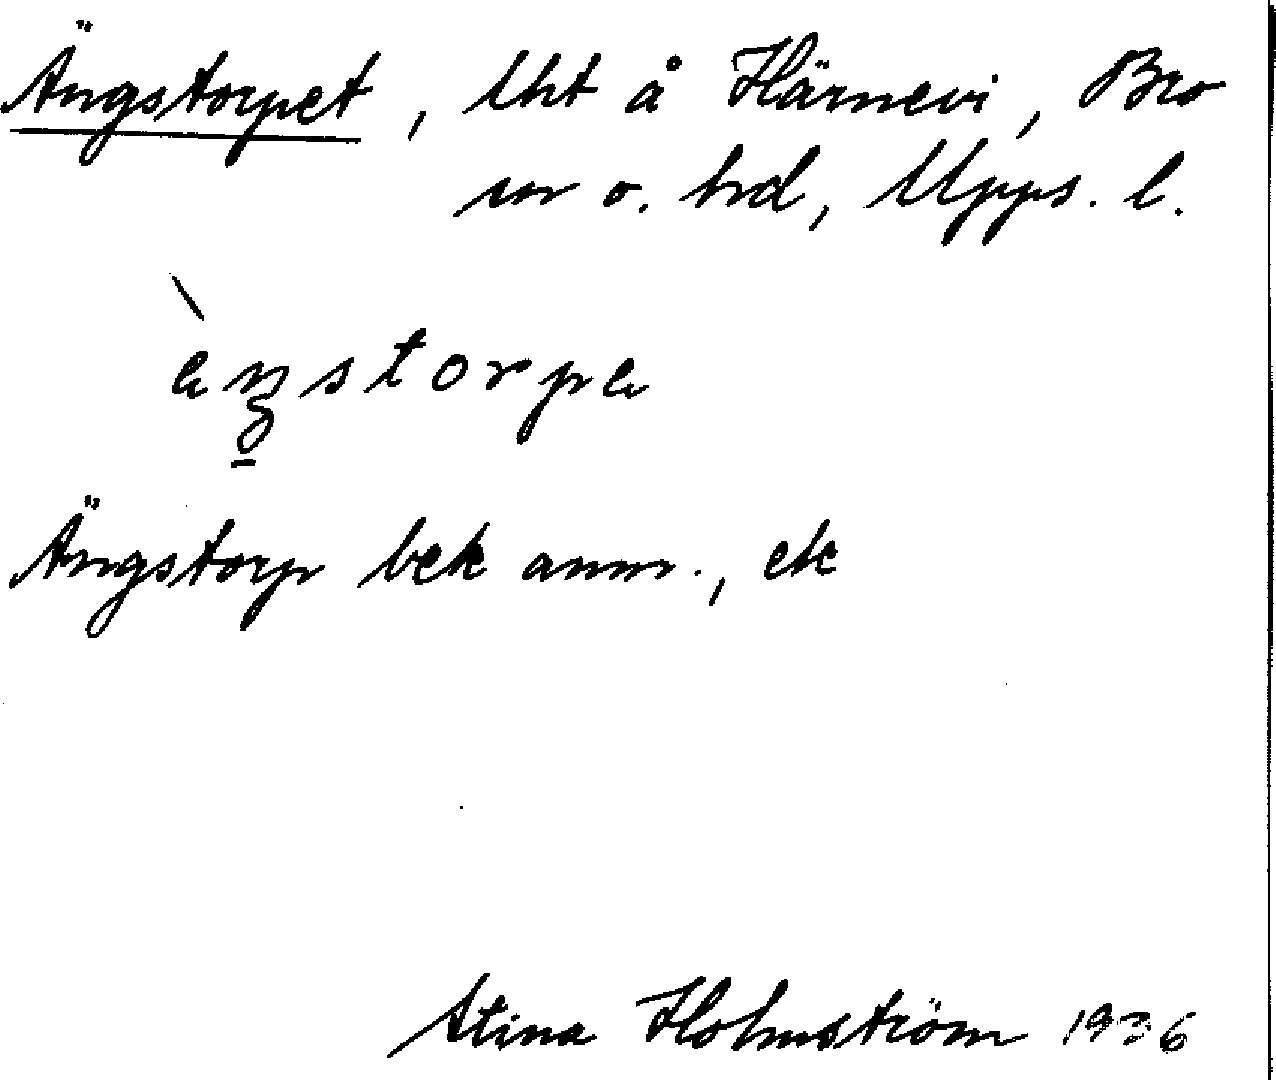 Ängstorpet, lht å Härnevi, Bro
sn o. hd, Upps. l.
Ängstorp bek anm., ek
Stina Holmström 1936